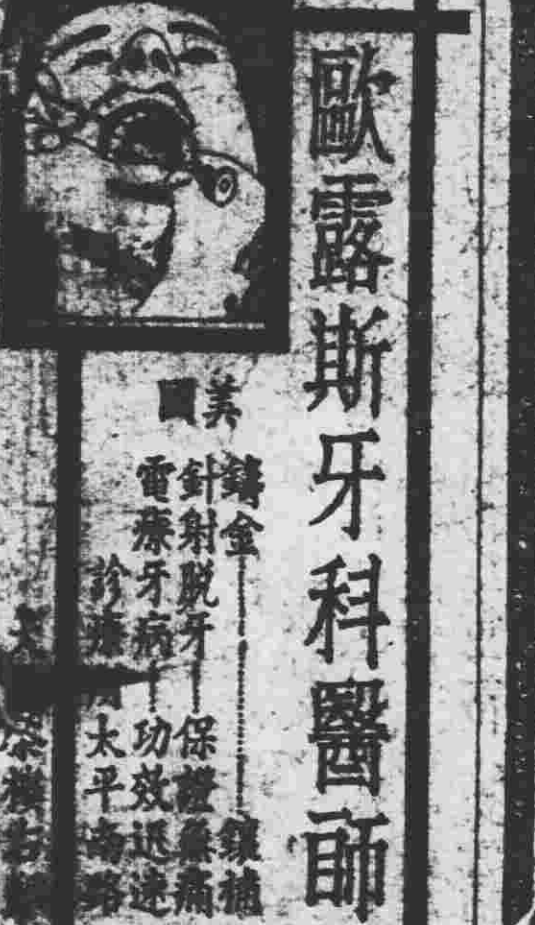 歐露斯牙科醫師
美國
鑄金┈┈鑲補
針射脫牙┈保證無痛
電療牙病┈功效迅速
診療 太平南路